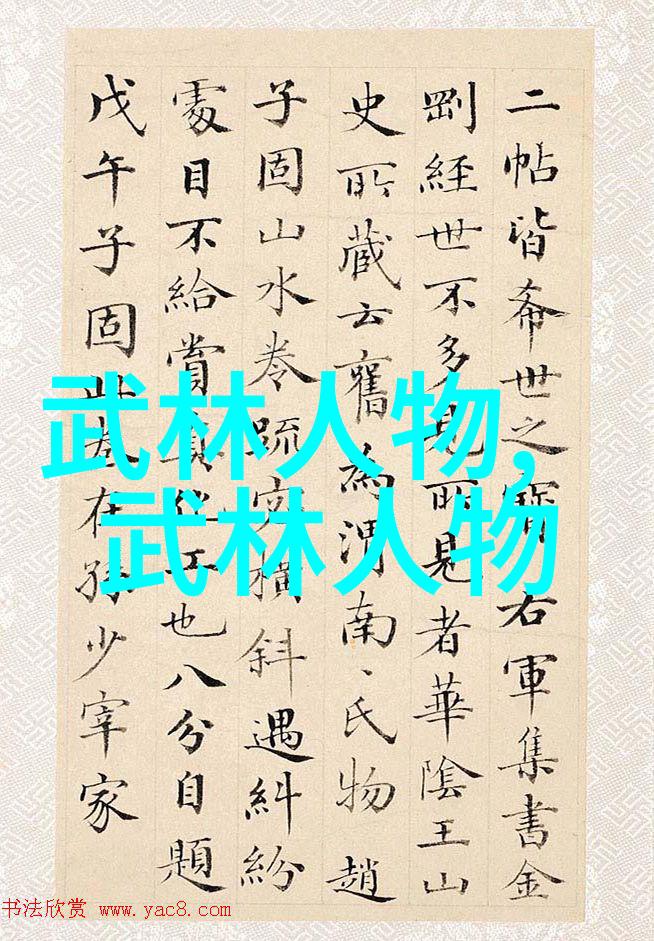 二帖皆希世之寶右軍集書金
剛經世不多見所見者華陰王山
史所藏云舊為渭南、氏物趙
子固山水卷疏密橫斜遇糾紛
處目不給賞真化工也八分自題
戊午子固此卷在孫少宰家
武林人物,
武林人物
书法欣赏 www.yac8.com